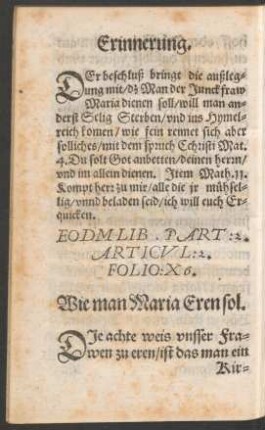 Erinnerung.
DEr beschluß bringt die außleg-
ung mit/dz Man der Junckfraw
Maria dienen soll/will man an-
derst Selig Sterben/vnd ins Hymel-
reich komen/wie fein reimet sich aber
solliches/mit dem spruch Christi Mat.
4. Du solt Got anbetten/deinen herrn/
vnd im allein dienen. Jtem Math. 11.
Kompt her zu mir/alle die jr mühsel-
lig/vnnd beladen seid/ich will euch Er-
quicken.
EODM LIB. PART:2.
ARTICVL:2.
FOLIO:X6.
Wie man Maria Eren sol.
DJe achte weis vnser Fra-
wen zu eren/ist das man ein
Kir-